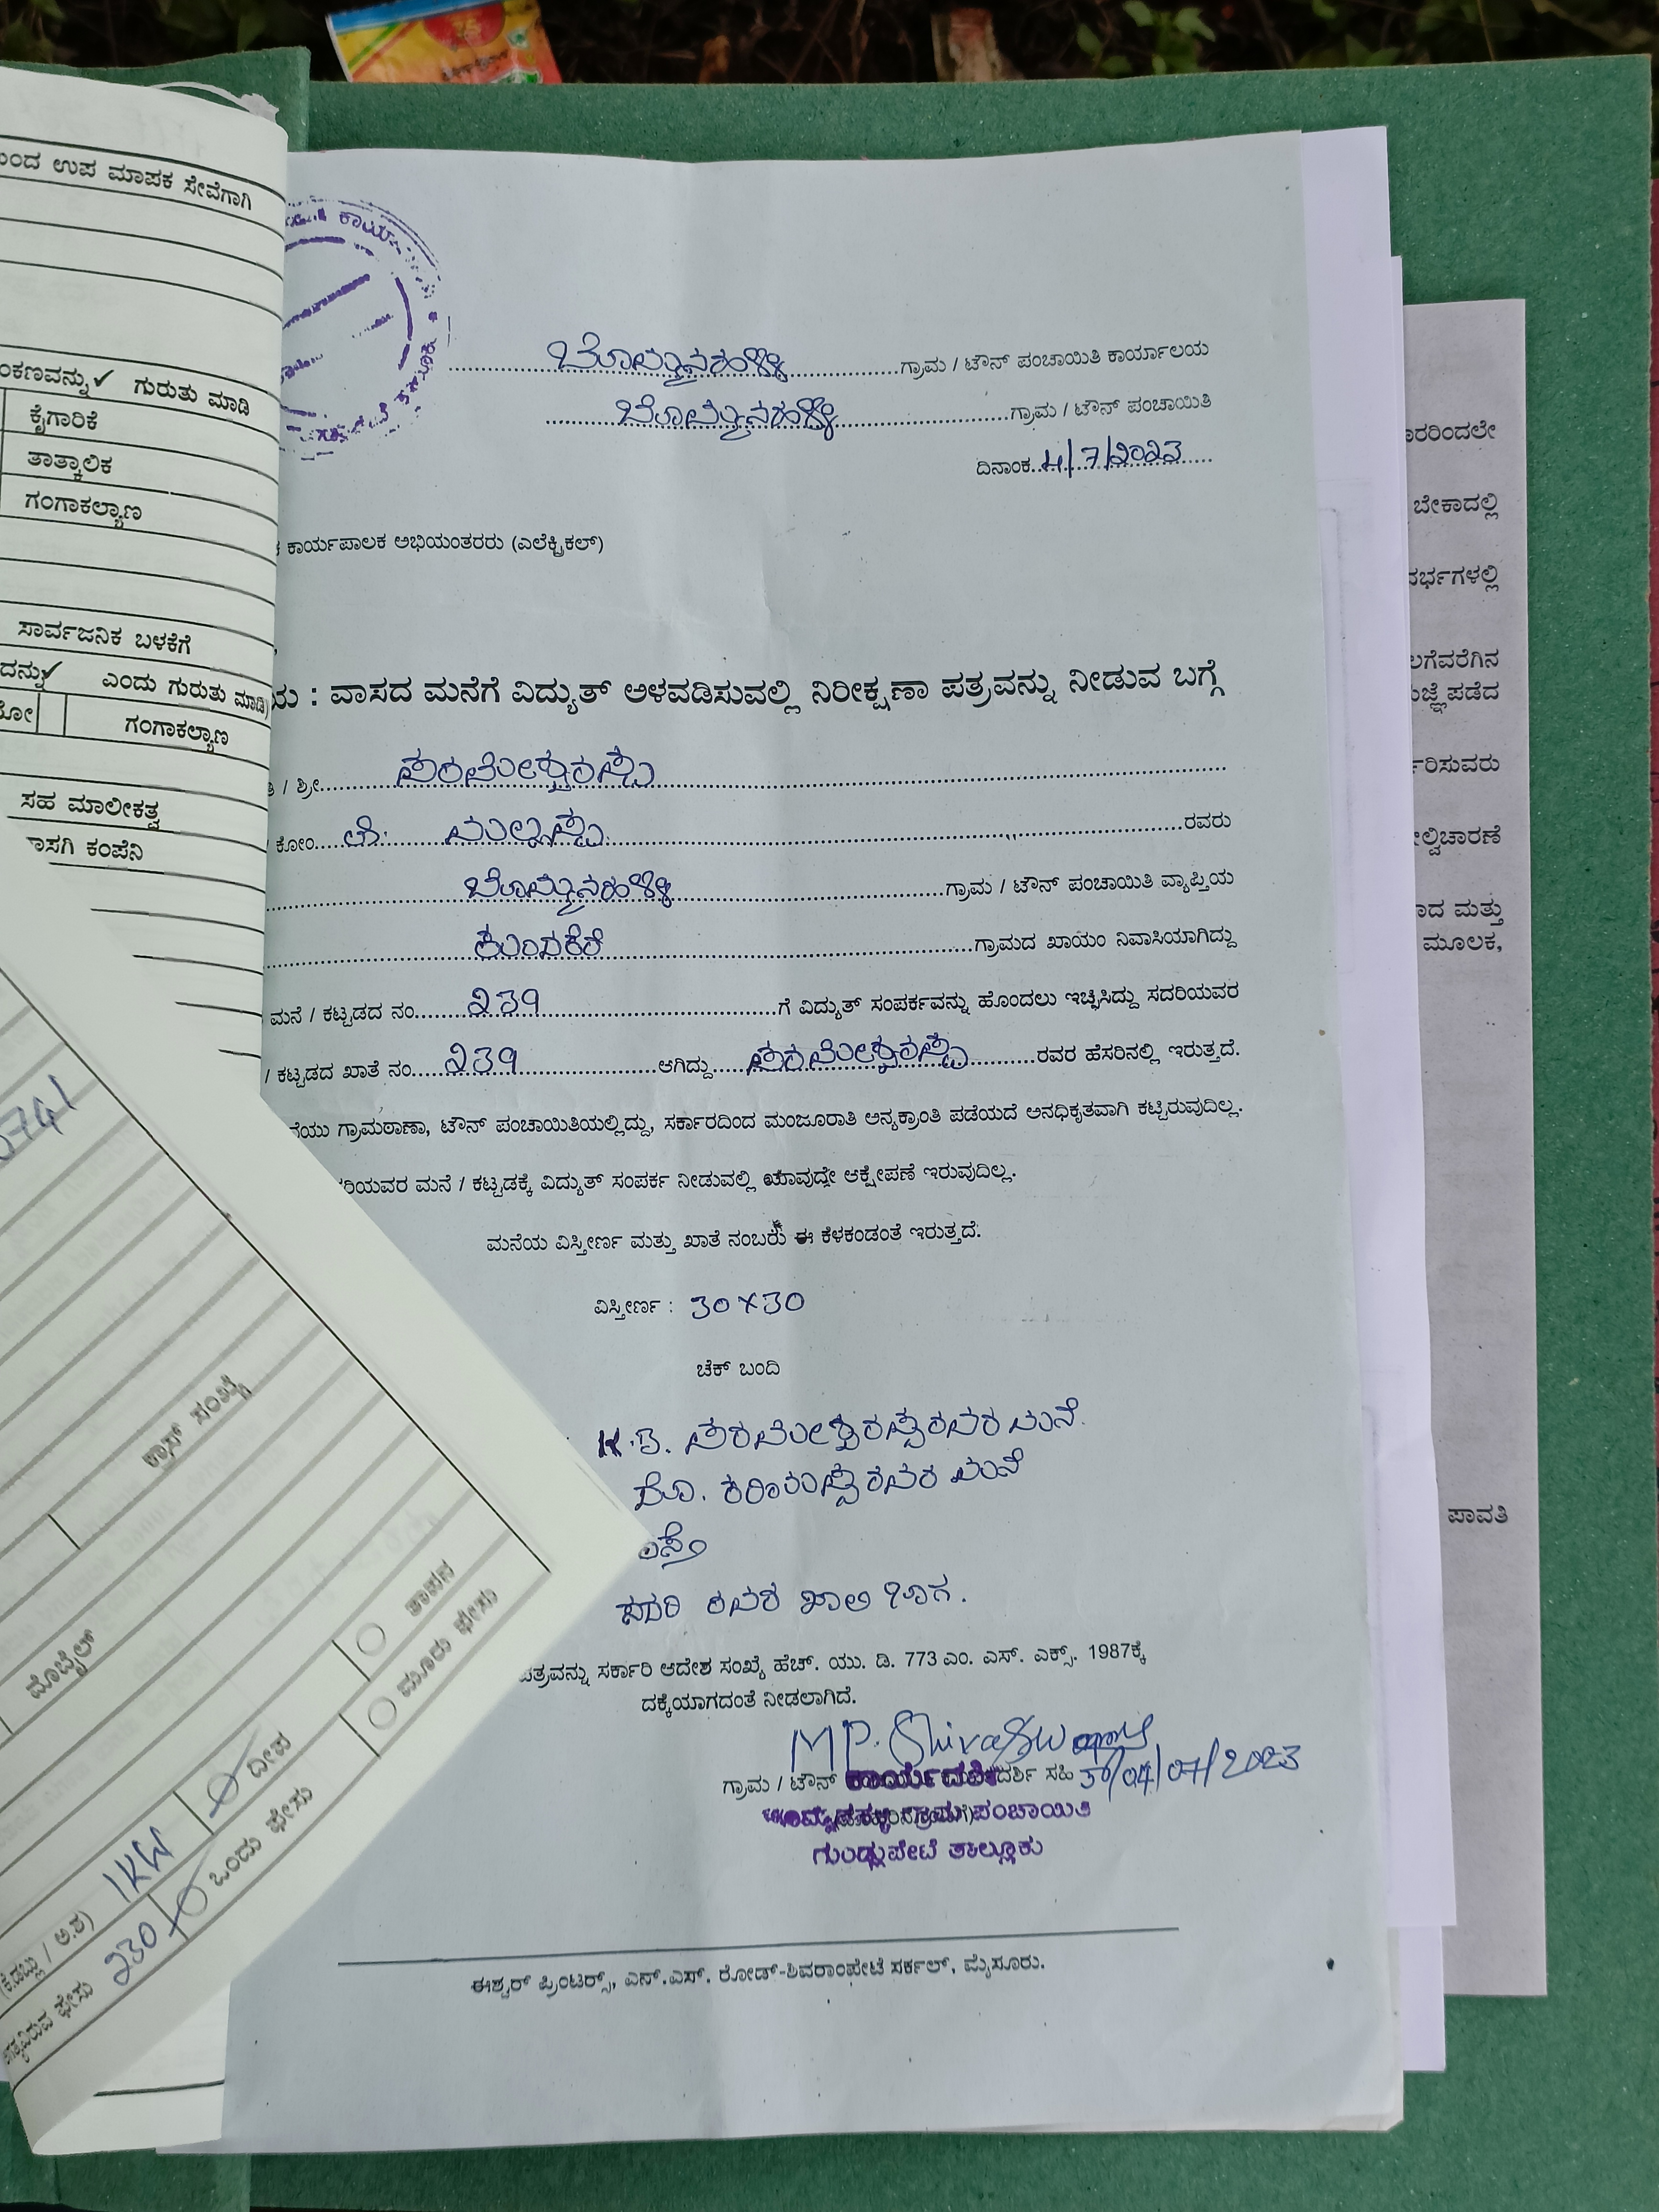 ಉಪ ಮಾಪಕ ಸೇವೆಗಾಗಿ
ಗುರುತು ಮಾಡಿ
ಕೈಗಾರಿಕೆ
ತಾತ್ಕಾಲಿಕ
ಗಂಗಾಕಲ್ಯಾಣ
ಸಾರ್ವಜನಿಕ ಬಳಕೆಗೆ
ಎಂದು ಗುರುತು ಮಾಡಿ)
ಗಂಗಾಕಲ್ಯಾಣ
ಸಹ ಮಾಲೀಕತ್ವ
ಕಂಪೆನಿ
ಮೊಬೈಲ್
1KW
ದೀಪ
ತಾಪನ
ಫೇಸು 230
ಒಂದು ಫೇಸು
ಮೂರು ಫೇಸು
ಬೊಮ್ಮನಹಳ್ಳಿ ಗ್ರಾಮ / ಟೌನ್ ಪಂಚಾಯಿತಿ ಕಾರ್ಯಾಲಯ
ಬೊಮ್ಮನಹಳ್ಳಿ ಗ್ರಾಮ / ಟೌನ್ ಪಂಚಾಯಿತಿ
ದಿನಾಂಕ 4/7/2023
ಕಾರ್ಯಪಾಲಕ ಅಭಿಯಂತರರು (ಎಲೆಕ್ಟ್ರಿಕಲ್)
: ವಾಸದ ಮನೆಗೆ ವಿದ್ಯುತ್ ಅಳವಡಿಸುವಲ್ಲಿ ನಿರೀಕ್ಷಣಾ ಪತ್ರವನ್ನು ನೀಡುವ ಬಗ್ಗೆ
/ ಶ್ರೀ ಪರಮೇಶ್ವರಪ್ಪ
ಕೋಂ ಲೇ: ಮಲ್ಲಪ್ಪ ರವರು
ಬೊಮ್ಮನಹಳ್ಳಿ ಗ್ರಾಮ / ಟೌನ್ ಪಂಚಾಯಿತಿ ವ್ಯಾಪ್ತಿಯ
ಕುಂದಕೆರೆ ಗ್ರಾಮದ ಖಾಯಂ ನಿವಾಸಿಯಾಗಿದ್ದು
ಮನೆ / ಕಟ್ಟಡದ ನಂ. 239 ಗೆ ವಿದ್ಯುತ್ ಸಂಪರ್ಕವನ್ನು ಹೊಂದಲು ಇಚ್ಛಿಸಿದ್ದು ಸದರಿಯವರ
/ ಕಟ್ಟಡದ ಖಾತೆ ನಂ. 239 ಆಗಿದ್ದು ಪರಮೇಶ್ವರಪ್ಪ ರವರ ಹೆಸರಿನಲ್ಲಿ ಇರುತ್ತದೆ.
ಗ್ರಾಮಠಾಣಾ, ಟೌನ್ ಪಂಚಾಯಿತಿಯಲ್ಲಿದ್ದು, ಸರ್ಕಾರದಿಂದ ಮಂಜೂರಾತಿ ಅನ್ಯಕ್ರಾಂತಿ ಪಡೆಯದೆ ಅನಧಿಕೃತವಾಗಿ ಕಟ್ಟಿರುವುದಿಲ್ಲ.
ಮನೆ / ಕಟ್ಟಡಕ್ಕೆ ವಿದ್ಯುತ್ ಸಂಪರ್ಕ ನೀಡುವಲ್ಲಿ ಯಾವುದೇ ಆಕ್ಷೇಪಣೆ ಇರುವುದಿಲ್ಲ.
ಮನೆಯ ವಿಸ್ತೀರ್ಣ ಮತ್ತು ಖಾತೆ ನಂಬರು ಈ ಕೆಳಕಂಡಂತೆ ಇರುತ್ತದೆ.
ವಿಸ್ತೀರ್ಣ : 30 X 30
ಚೆಕ್ ಬಂದಿ
K.B. ಪರಮೇಶ್ವರಪ್ಪರವರ ಮನೆ.
ಮನೆ
ರವರ ಖಾಲಿ ಜಾಗ.
ಪತ್ರವನ್ನು ಸರ್ಕಾರಿ ಆದೇಶ ಸಂಖ್ಯೆ ಹೆಚ್. ಯು. ಡಿ. 773 ಎಂ. ಎಸ್. ಎಕ್ಸ್. 1987ಕ್ಕೆ
ದಕ್ಕೆಯಾಗದಂತೆ ನೀಡಲಾಗಿದೆ.
M P. Shivaswamy
ಗ್ರಾಮ / ಟೌನ್ ಸಹಿ 04/07/2023
ಕಾರ್ಯದರ್ಶಿ
ಗ್ರಾಮ ಪಂಚಾಯಿತಿ
ಗುಂಡ್ಲುಪೇಟೆ ತಾಲ್ಲೂಕು
ಈಶ್ವರ್ ಪ್ರಿಂಟರ್ಸ್, ಎನ್.ಎಸ್. ರೋಡ್-ಶಿವರಾಂಪೇಟೆ ಸರ್ಕಲ್, ಮೈಸೂರು.
ಬೇಕಾದಲ್ಲಿ
ಮತ್ತು
ಮೂಲಕ,
ಪಾವತಿ